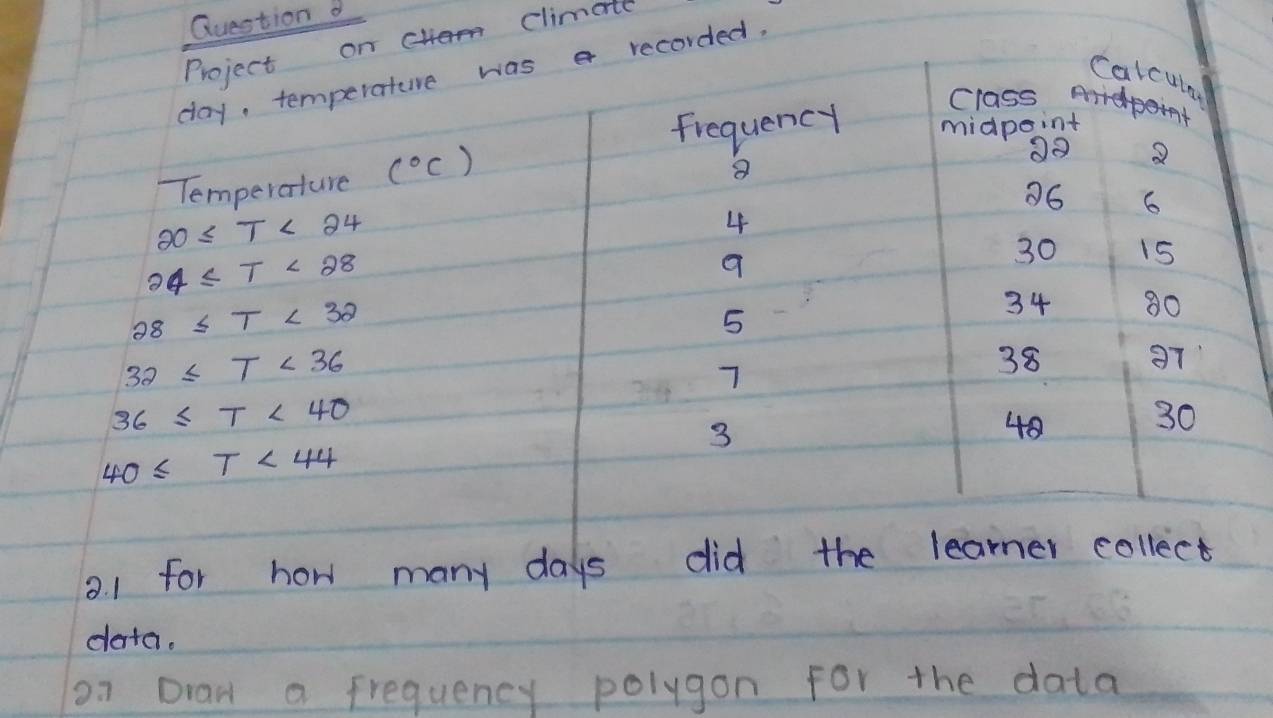 Question 2
Project on climate
day, temperature was recorded.
Temperature (°C) Frequency Class midpoint Calcula
20 ≤ T < 24 2 22 2
24 ≤ T < 28 4 26 6
28 ≤ T < 32 9 30 15
32 ≤ T < 36 5 34 20
36 ≤ T < 40 7 38 27
40 ≤ T < 44 3 42 30
2.1 for how many days did the learner collect
data.
2.2 Draw a frequency polygon for the data